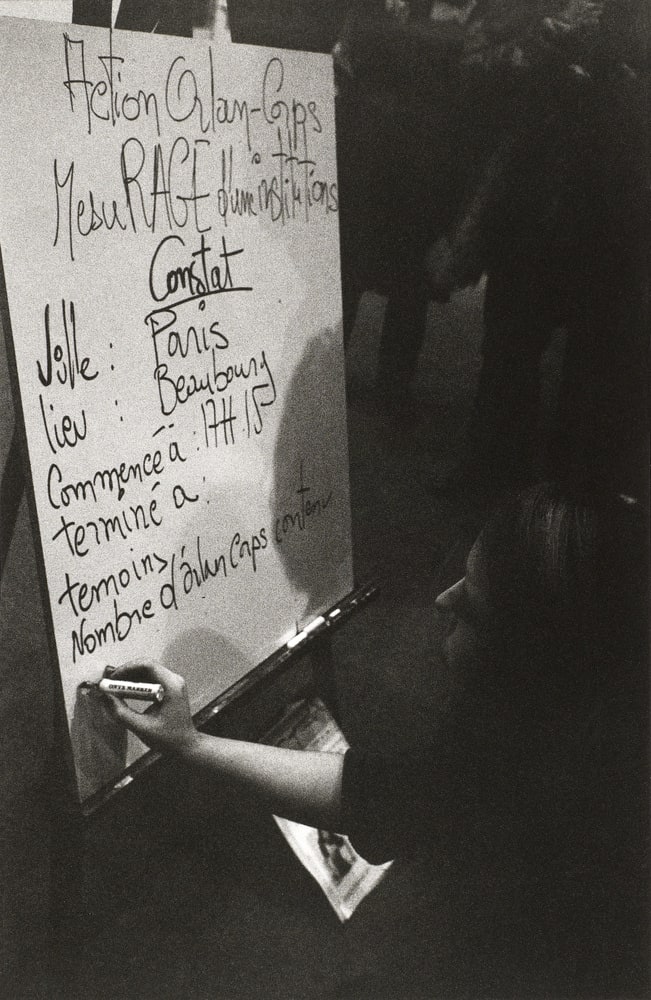 Action Orlan-Corps
MesuRAGE d'une institutions
Constat
Ville : Paris
lieu : Beaubourg
Commencé à : 17H.15
terminé a :
temoins
Nombre d'orlan Corps contenu